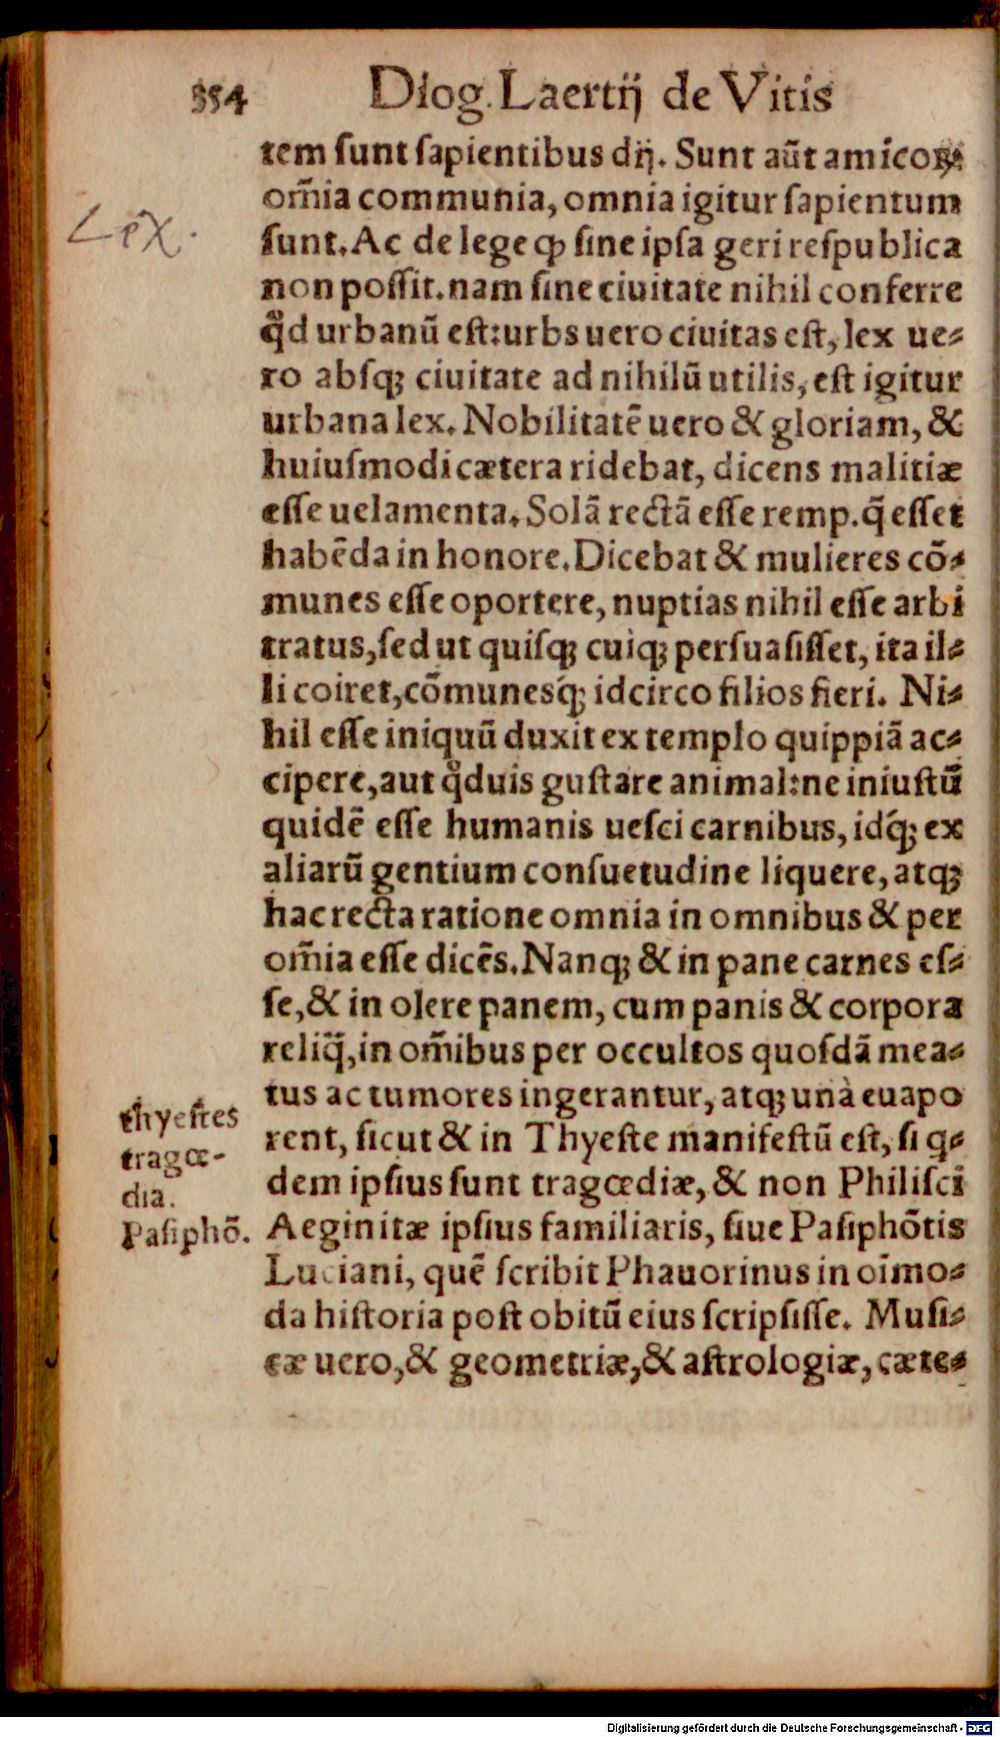 354 Diog. Laertij de Vitis
tem sunt sapientibus dij. Sunt aūt amicoꝝ
om̄ia communia, omnia igitur sapientum
Lex.
sunt. Ac de lege ꝙ sine ipsa geri respublica
non possit. nam sine ciuitate nihil conferre
qd̛ urbanū est: urbs uero ciuitas est, lex ue⸗
ro absqꝫ ciuitate ad nihilū utilis, est igitur
urbana lex. Nobilitatē uero & gloriam, &
huiusmodi cætera ridebat, dicens malitiæ
esse uelamenta. Solā rectā esse remp. q̄ esset
habēda in honore. Dicebat & mulieres cō⸗
munes esse oportere, nuptias nihil esse arbi
tratus, sed ut quisqꝫ cuiqꝫ persuasisset, ita il⸗
li coiret, cōmunesq́ꝫ idcirco filios fieri. Ni⸗
hil esse iniquū duxit ex templo quippiā ac⸗
cipere, aut qd̛uis gustare animal: ne iniustū
quidē esse humanis uesci carnibus, idq́ꝫ ex
aliarū gentium consuetudine liquere, atqꝫ
hac recta ratione omnia in omnibus & per
om̄ia esse dicēs. Nanqꝫ & in pane carnes es⸗
se, & in olere panem, cum panis & corpora
reliq̄, in om̄ibus per occultos quosdā mea⸗
tus ac tumores ingerantur, atqꝫ unà euapo
thyestes
rent, sicut & in Thyeste manifestū est, si q⸗
tragœ-
dem ipsius sunt tragœdiæ, & non Philisci
dia.
Pasiphō.
Aeginitæ ipsius familiaris, siue Pasiphōtis
Luciani, quē scribit Phauorinus in oīmo⸗
da historia post obitū eius scripsisse. Musi⸗
cæ uero, & geometriæ, & astrologiæ, cæte⸗
Digitalisierung gefördert durch die Deutsche Forschungsgemeinschaft - DFG